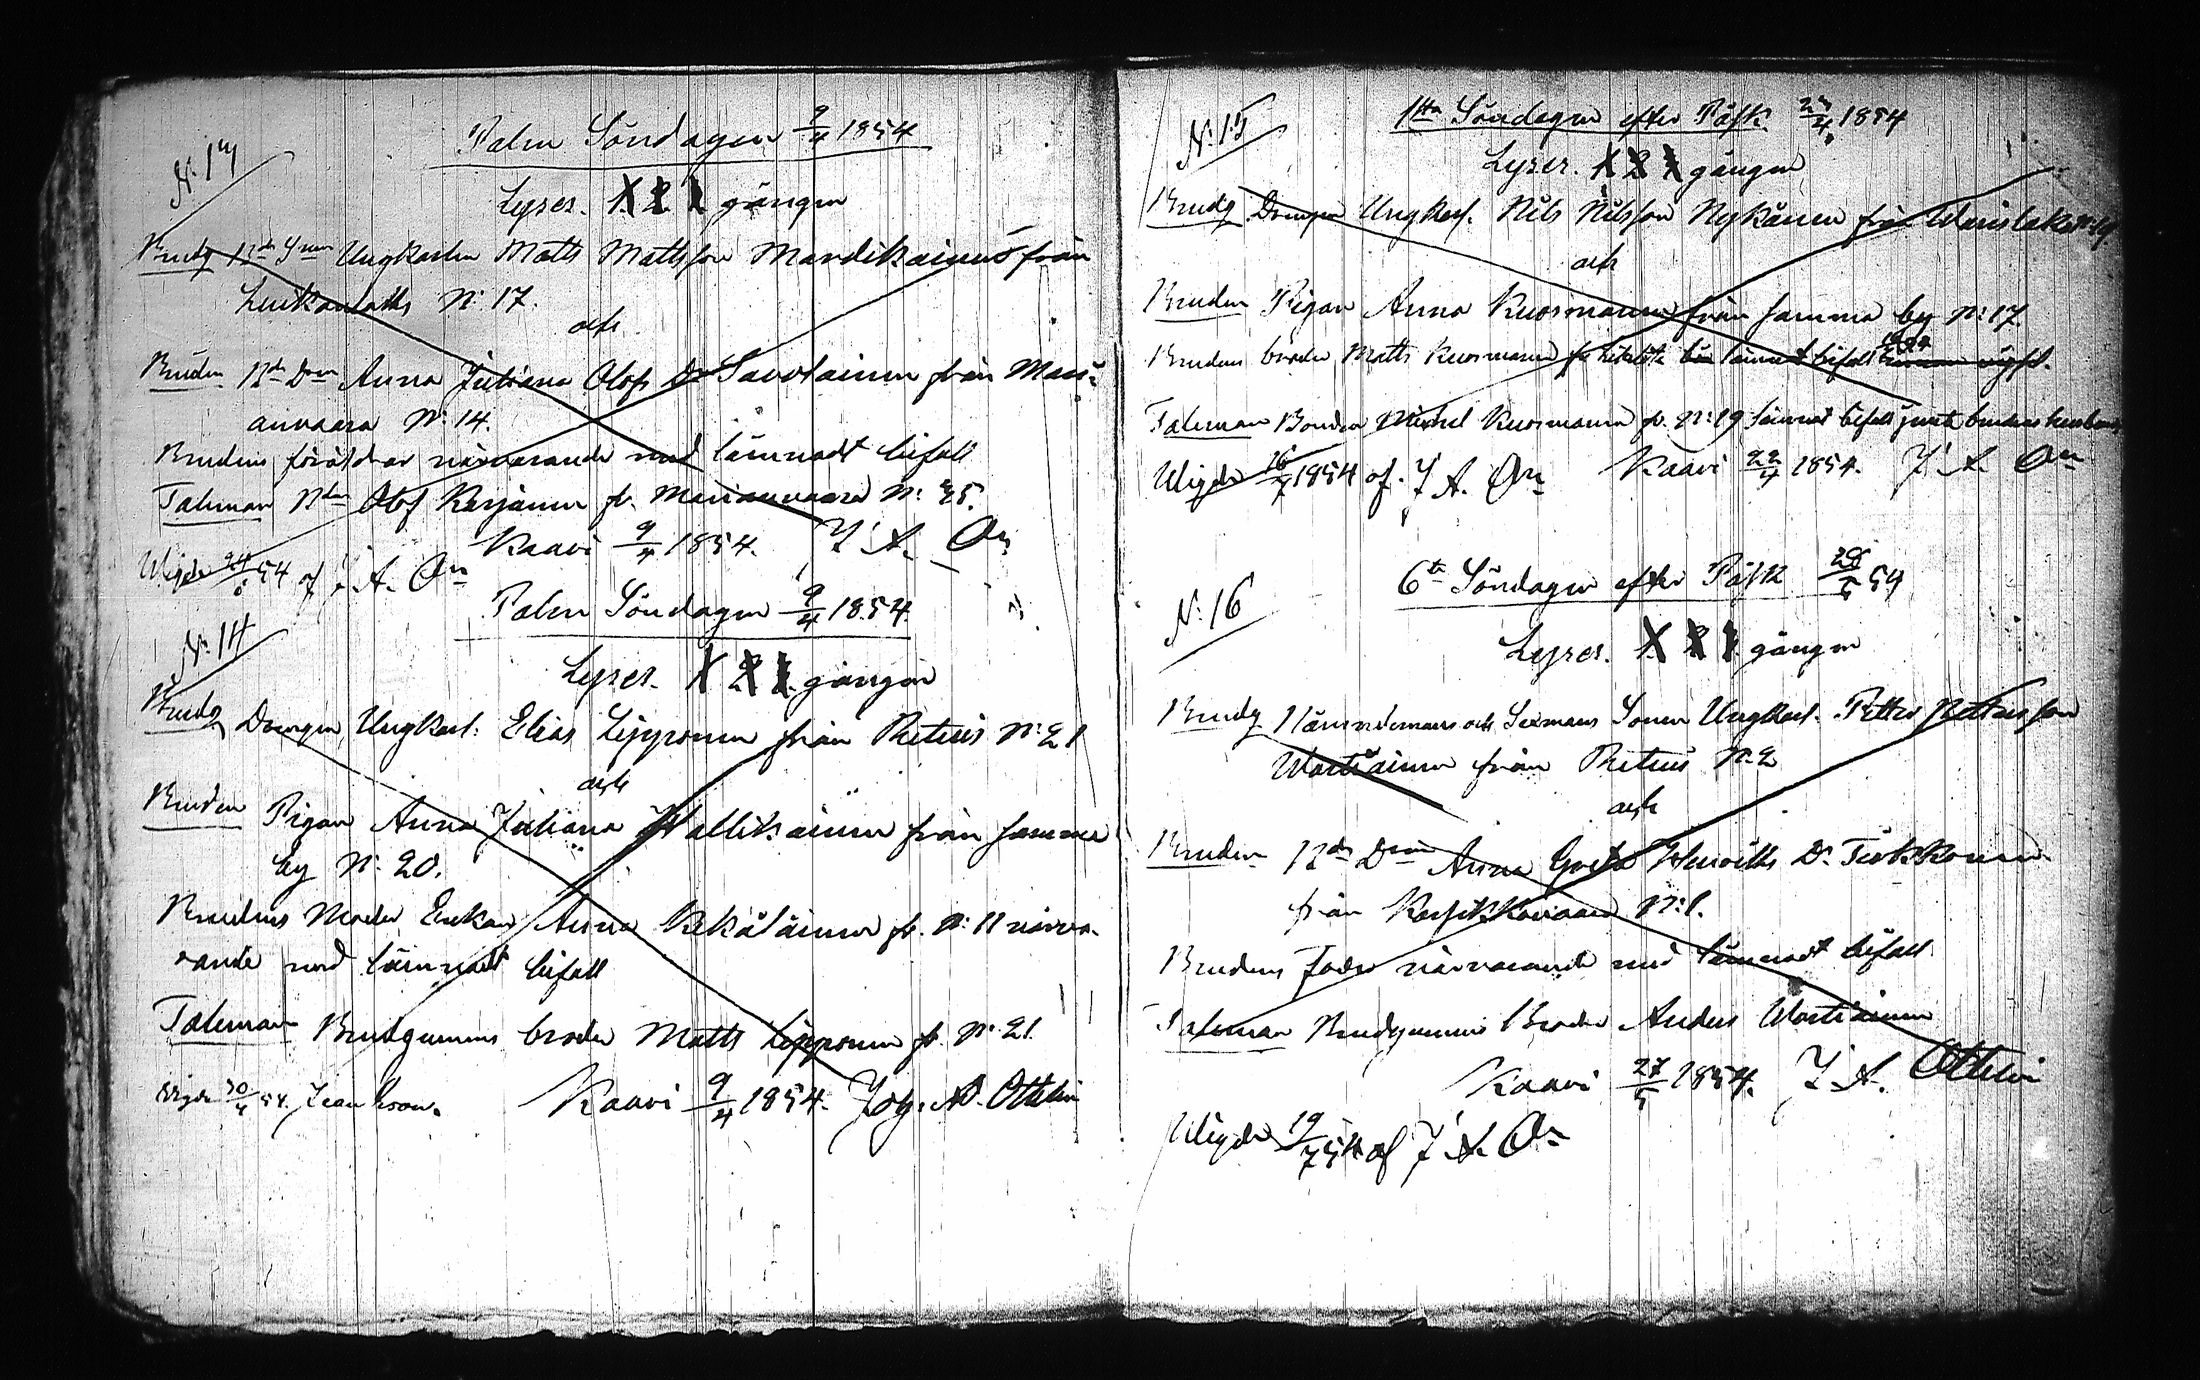 Palm Söndagen 9/4 1854
N: 13
Lyses. 1. 2. 3. gången
Brudg. Ungkarlen Matts Mattsson Mandikainen från
N: 17.
och
Bruden Anna Juliana Olofs Dr Savolainen från Mari-
anvaara N: 14.
Brudens föräldrar närvarande med lämnadt bifall
Taleman Olof Karjänen fr. Marianvaara N:
Kaavi 9/4 1854. J. A. On
Wigde 54 af J. A. On
Palm Söndagen 9/4 1854.
N: 14
Lyses. 1. 2. 3. gången
Brudg. Drengen Ungkarl. Elias Lipponen från Retunis N: 21
och
Bruden Pigan Anna Juliana Hallikainen från samma
by N: 20.
Brudens Moder Enkan Anna fr. N: 11 närva-
rande med lämnadt bifall
Taleman Brudgummens broder Matts Lipponen fr. N: 21.
Wigde 30/4 54. Kaavi 9/4 1854. Joh. A. Ottelin
1sta Söndagen efter Påsk. 23/4 1854
N: 15
Lyses. 1 2 3 gången
Brudg. Drengen Ungkarl. Nils Nilsson Nykänen från N: 19.
och
Bruden Pigan Anna Kuosmanen från samma by N: 17.
Brudens broder Matts Kuosmanen lämnat bifall
Taleman Bonden Mickel Kuosmanen fr. N: 19 lämnat bifall brudens
Wigde 16/7 1854 af J. A. On Kaavi 22/4 1854. J. A. On
6te Söndagen efter Påsk 28/5 54
N: 16
Lyses. 1. 2. 3. gången
Brudg. Nämndemans och Sexmans Sonen Ungkarl. Petter Pettersson
Wartiainen från Retunis N: 2
och
Bruden Anna Greta Dr
från N: 1.
Brudens Fader närvarande med lämnadt bifall
Taleman Brudgummens Broder Anders Wartiainen
Kaavi 27/5 1854. J. A. Ottelin
Wigde 19/7 54 af J. A. On